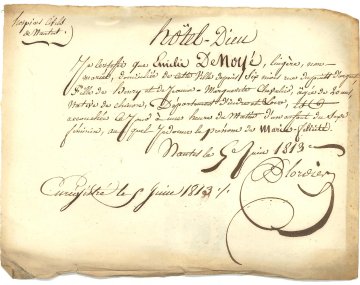 hospices Civils
de Nantes
hôtel-Dieu
Je Certifie que Emilie DeMoyé, lingère, non
mariée, domiciliée de cette Ville depuis Six mois rue
fille de et de Jeanne-Marguerite Chapelié, agée de 20 ans,
Native de chinon, Département d'indre et loire,
accouchée ce Jour à une heure du Matin d'un enfant du Sexe
féminin, au quel Je donne le prénom de Marie-félicité
Nantes le 5 Juin 1813
Plordier
Enregistré le Juin 1813